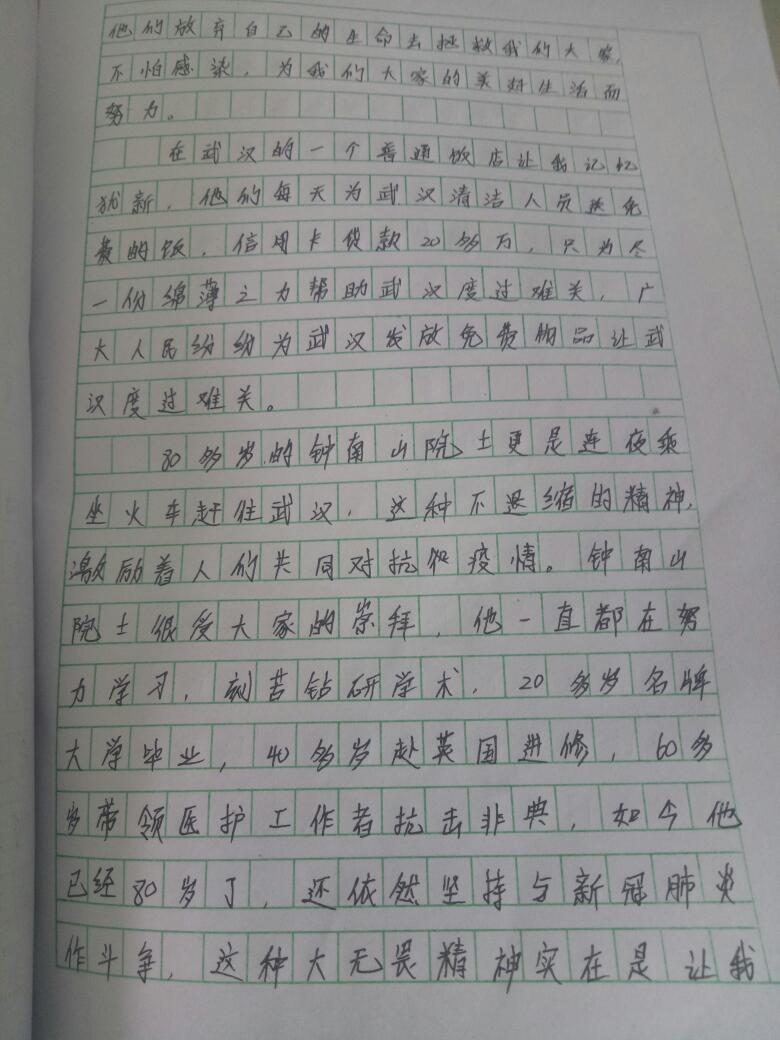 他们放弃自己的生命去拯救我们大家,
不怕感染,为我们大家的美好生活而
努力。
在武汉的一个普通饭店让我记忆
犹新,他们每天为武汉清洁人员送免
费的饭,信用卡贷款20多万,只为尽
一份绵薄之力帮助武汉度过难关,广
大人民纷纷为武汉发放免费物品让武
汉度过难关。
80多岁的钟南山院士更是连夜乘
坐火车赶往武汉,这种不退缩的精神,
激励着人们共同对抗疫情。钟南山
院士很受大家的崇拜,他一直都在努
力学习,刻苦钻研学术,20多岁名牌
大学毕业,40多岁赴英国进修,60多
岁带领医护工作者抗击非典,如今他
已经80岁了,还依然坚持与新冠肺炎
作斗争,这种大无畏精神实在是让我